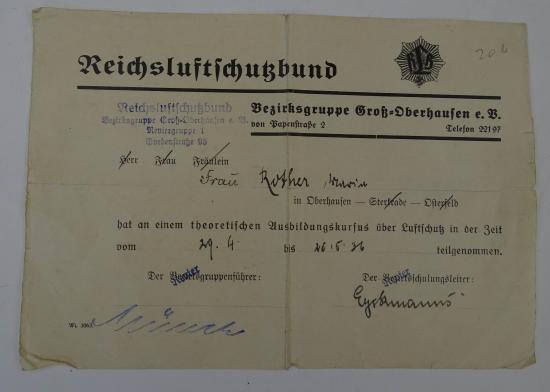 20 b
RLB
Reichsluftschutzbund
Reichsluftschutzbund
Bezirksgruppe Groß-Oberhausen e. V.
Reviergruppe 1
95
Bezirksgruppe Groß-Oberhausen e. V.
von Papenstraße 2 Telefon 22197
Herr Frau Fräulein
Frau Rother, Maria
in Oberhausen — Sterkrade — Osterfeld
hat an einem theoretischen Ausbildungskursus über Luftschutz in der Zeit
vom 29. 4. bis 20. 5. 36 teilgenommen.
Revier Revier
Der Bezirksgruppenführer: Der Bezirksschulungsleiter: